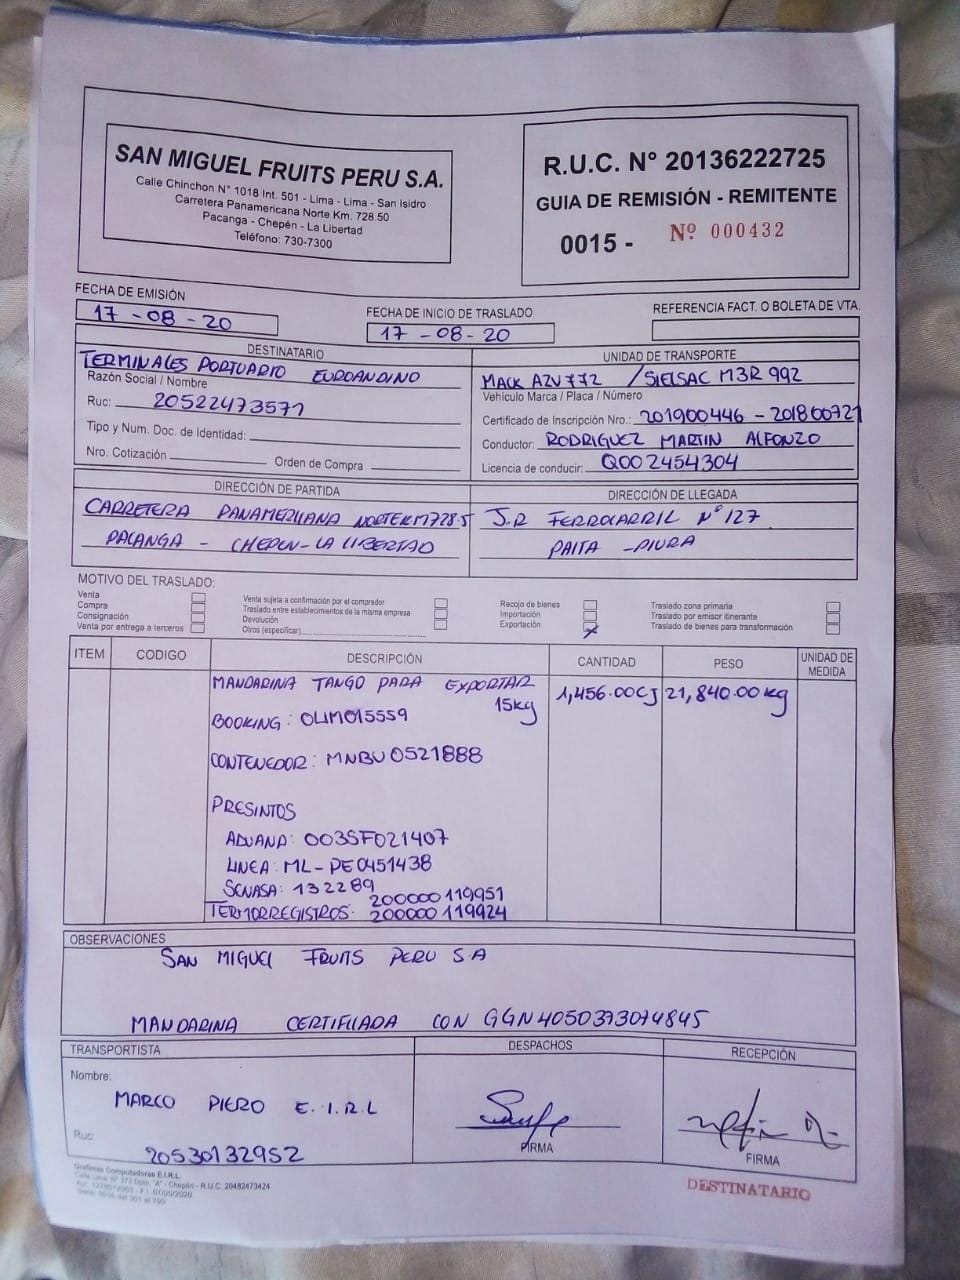 SAN MIGUEL FRUITS PERU S.A.
Calle Chinchon N° 1018 Int. 501 - Lima - Lima - San Isidro
Carretera Panamericana Norte Km. 728.50
Pacanga - Chepén - La Libertad
Teléfono: 730-7300
R.U.C. N° 20136222725
GUIA DE REMISIÓN - REMITENTE
0015 - Nº 000432
FECHA DE EMISIÓN
17-08-20
FECHA DE INICIO DE TRASLADO
17-08-20
REFERENCIA FACT. O BOLETA DE VTA.
DESTINATARIO
TERMINALES PORTUARIO EUROANDINO
Razón Social / Nombre
Ruc: 20522473571
Tipo y Num. Doc. de Identidad:
Nro. Cotización Orden de Compra
UNIDAD DE TRANSPORTE
MACK AZV772 /SIELSAC M3R 992
Vehículo Marca / Placa / Número
Certificado de Inscripción Nro.: 201900446 - 201800721
Conductor: RODRIGUEZ MARTIN ALFONZO
Licencia de conducir: Q002454304
DIRECCIÓN DE PARTIDA
CARRETERA PANAMERICANA NORTE KM728.5
PACANGA - CHEPEN - LA LIBERTAD
DIRECCIÓN DE LLEGADA
J.R FERROCARRIL N° 127
PAITA - PIURA
MOTIVO DEL TRASLADO:
Venta
Compra
Consignación
Venta por entrega a terceros
Venta sujeta a confirmación por el comprador
Traslado entre establecimientos de la misma empresa
Devolución
Otros (especificar)
Recojo de bienes
Importación
Exportación X
Traslado zona primaria
Traslado por emisor itinerante
Traslado de bienes para transformación
ITEM CODIGO DESCRIPCIÓN CANTIDAD PESO UNIDAD DE MEDIDA
MANDARINA TANGO PARA EXPORTAR 1,456.00CJ 21,840.00 kg
15kg
BOOKING: OLIM015559
CONTENEDOR: MNBU 0521888
PRESINTOS
ADUANA: 003SF021407
LINEA: ML-PE0451438
SENASA: 132289
200000 119951
TERMORREGISTROS: 200000 119924
OBSERVACIONES
SAN MIGUEL FRUITS PERU S.A
MANDARINA CERTIFICADA CON GGN 4050373074845
TRANSPORTISTA
Nombre:
MARCO PIERO E.I.R.L
Ruc:
20530132952
DESPACHOS
FIRMA
RECEPCIÓN
FIRMA
Graficas Computadores E.I.R.L.
- Chepén - R.U.C. 20482473424
F.I. 07/05/2020
DESTINATARIO